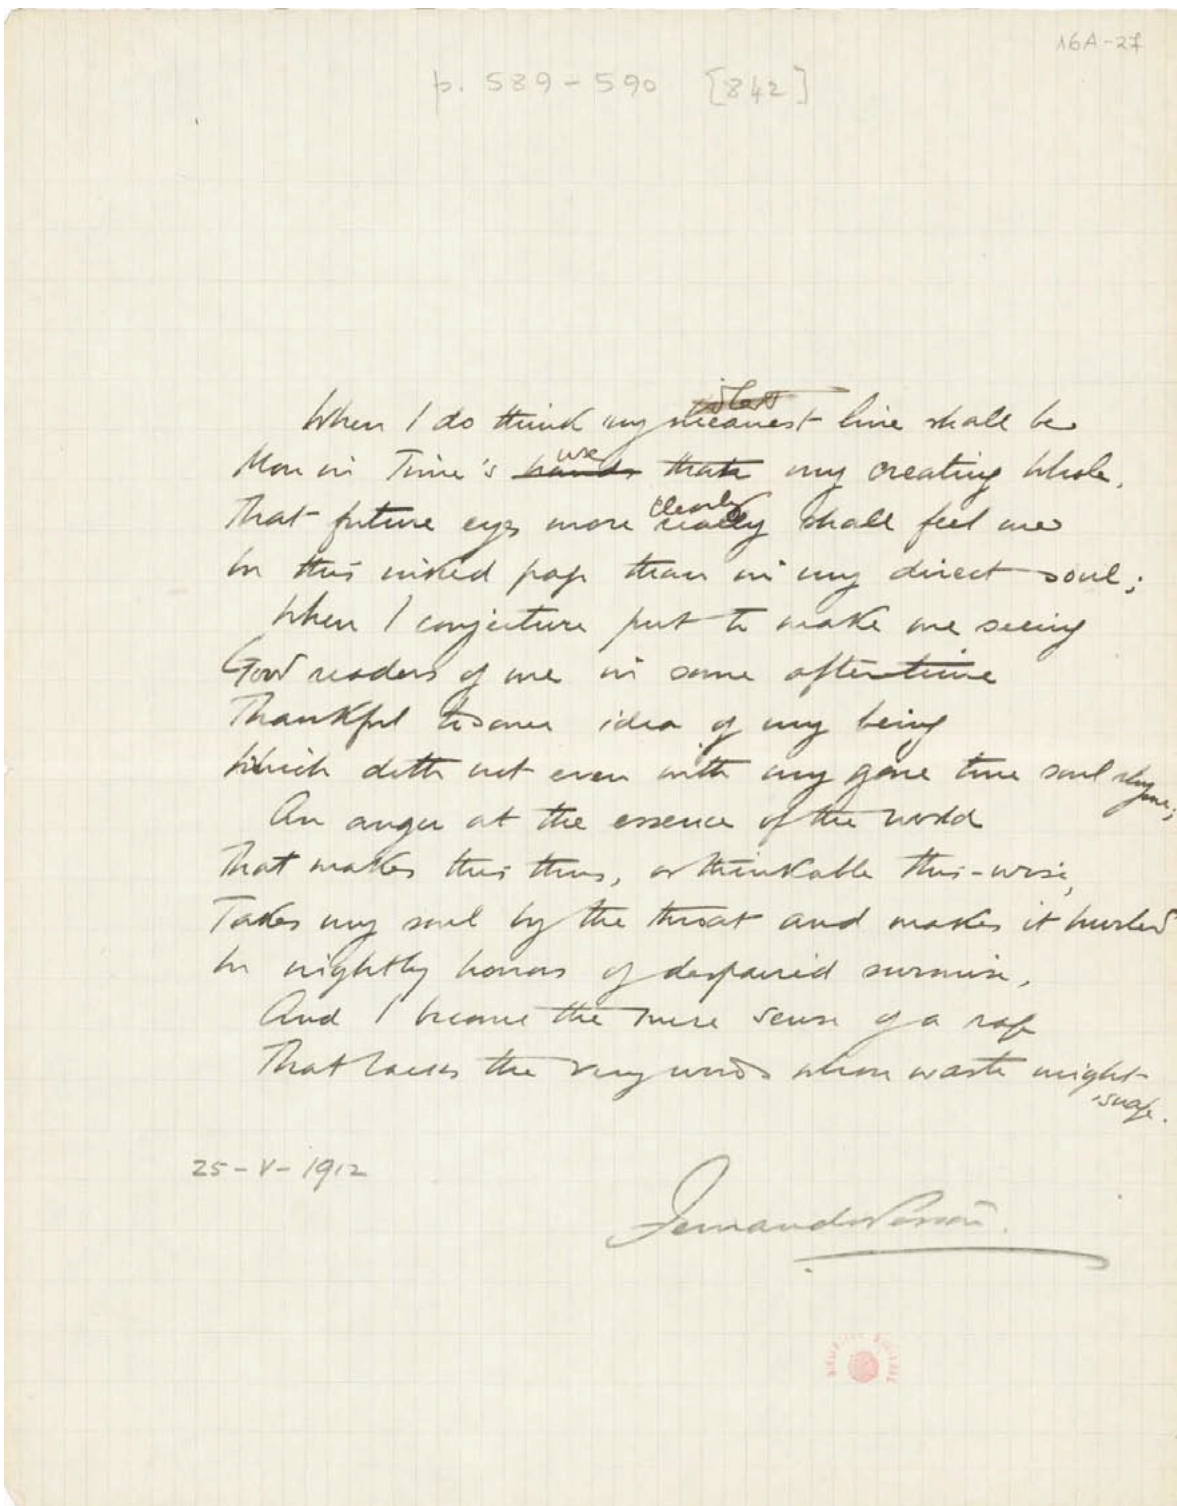 16A-27
p. 589-590 [842]
When I do think my meanest line shall be
use
More in Time's hands than my creating whole,
clearly
That future eyes more really shall feel me
In this inked page than in my direct soul;
When I conjecture put to make me seeing
Good readers of me in some aftertime
Thankful to some idea of my being
Which doth not even with my gone true soul rhyme;
An anger at the essence of the world
That makes this thus, or thinkable this-wise,
Takes my soul by the throat and makes it hurled
In nightly horrors of despaired surmise,
And I become the mere sense of a rage
That lacks the very words whose waste might
'suage.
25-V-1912
Fernando Pessôa.